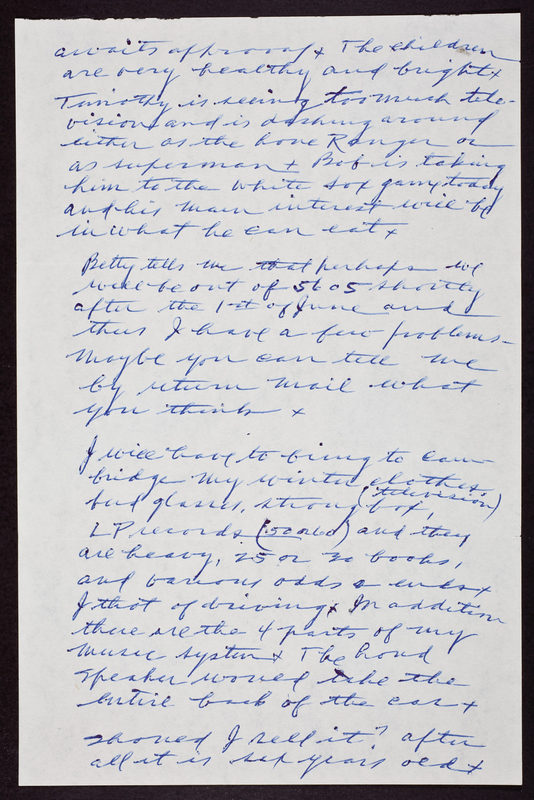 awaits approval x The children
are very healthy and bright x
Timothy is seeing too much tele-
vision and is dashing around
either as the lone Ranger or
as superman x Bob is taking
him to the white sox game today
and his main interest will be
in what he can eat x
Betty tells me that perhaps we
will be out of 5605 shortly
after the 1st of June and
thus I have a few problems -
Maybe you can tell me
by return mail what
you think x
I will have to bring to cam-
bridge my winter clothes,
bird glasses, strong box, (television)
LP records (50 or 60) and they
are heavy, 25 or 30 books,
and various odds & ends x
I thot of driving x In addition
there are the 4 parts of my
music system x The
speaker would take the
entire back of the car x
should I sell it? after
all it is six years old x